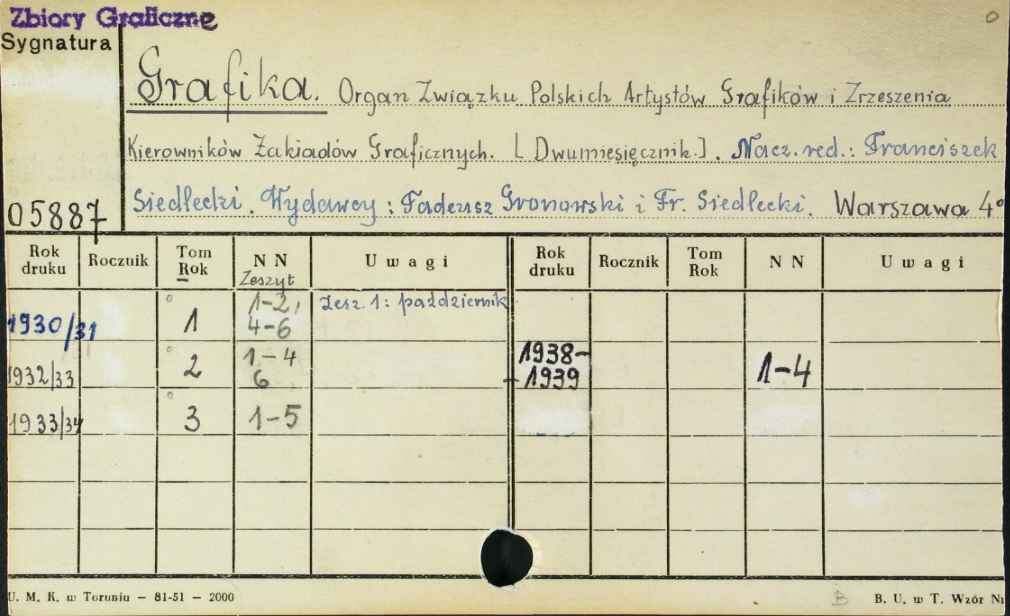 Zbiory Graficzne
Sygnatura
05887
Grafika. Organ Związku Polskich Artystów Grafików i Zrzeszenia
Kierowników Zakładów Graficznych. [Dwumiesięcznik.]. Nacz. red.: Franciszek
Siedlecki. Wydawcy: Tadeusz Gronowski i Fr. Siedlecki. Warszawa 4°
Rok druku Rocznik Tom Rok NN Zeszyt Uwagi Rok druku Rocznik Tom Rok NN Uwagi
1930/31 1 1-2, 4-6 Zesz. 1: październik
1932/33 2 1-4 6 1938-1939 1-4
1933/34 3 1-5
U. M. K. w Toruniu — 81-51 — 2000
B. U. w T. Wzór Nr